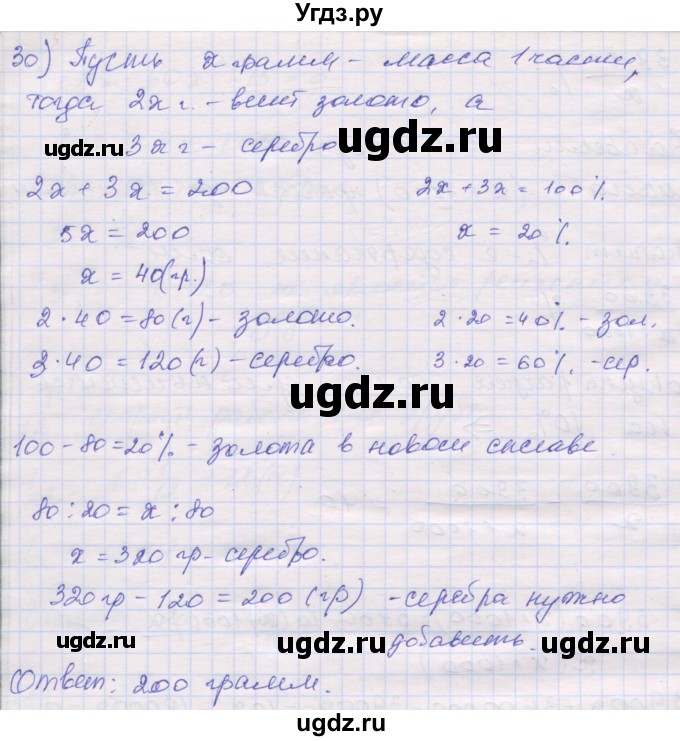 Угдз.ру
30) Пусть x грамм - масса 1 части,
тогда 2x г. - весит золото, а
3x г - серебро
ugdz.ru ugdz.ru ugdz.ru
2x + 3x = 200 2x + 3x = 100 %
5x = 200 x = 20 %
x = 40 (гр.)
2 · 40 = 80 (г) - золото. 2 · 20 = 40 % - зол.
3 · 40 = 120 (г) - серебро. 3 · 20 = 60 % - сер.
ugdz.ru
100 - 80 = 20 % - золота в новом сплаве
80 : 20 = x : 80
x = 320 гр - серебро.
320 гр - 120 = 200 (гр) - серебра нужно
ugdz.ru ugdz.ru ugdz.ru
добавить.
Ответ: 200 грамм.
ugdz.ru